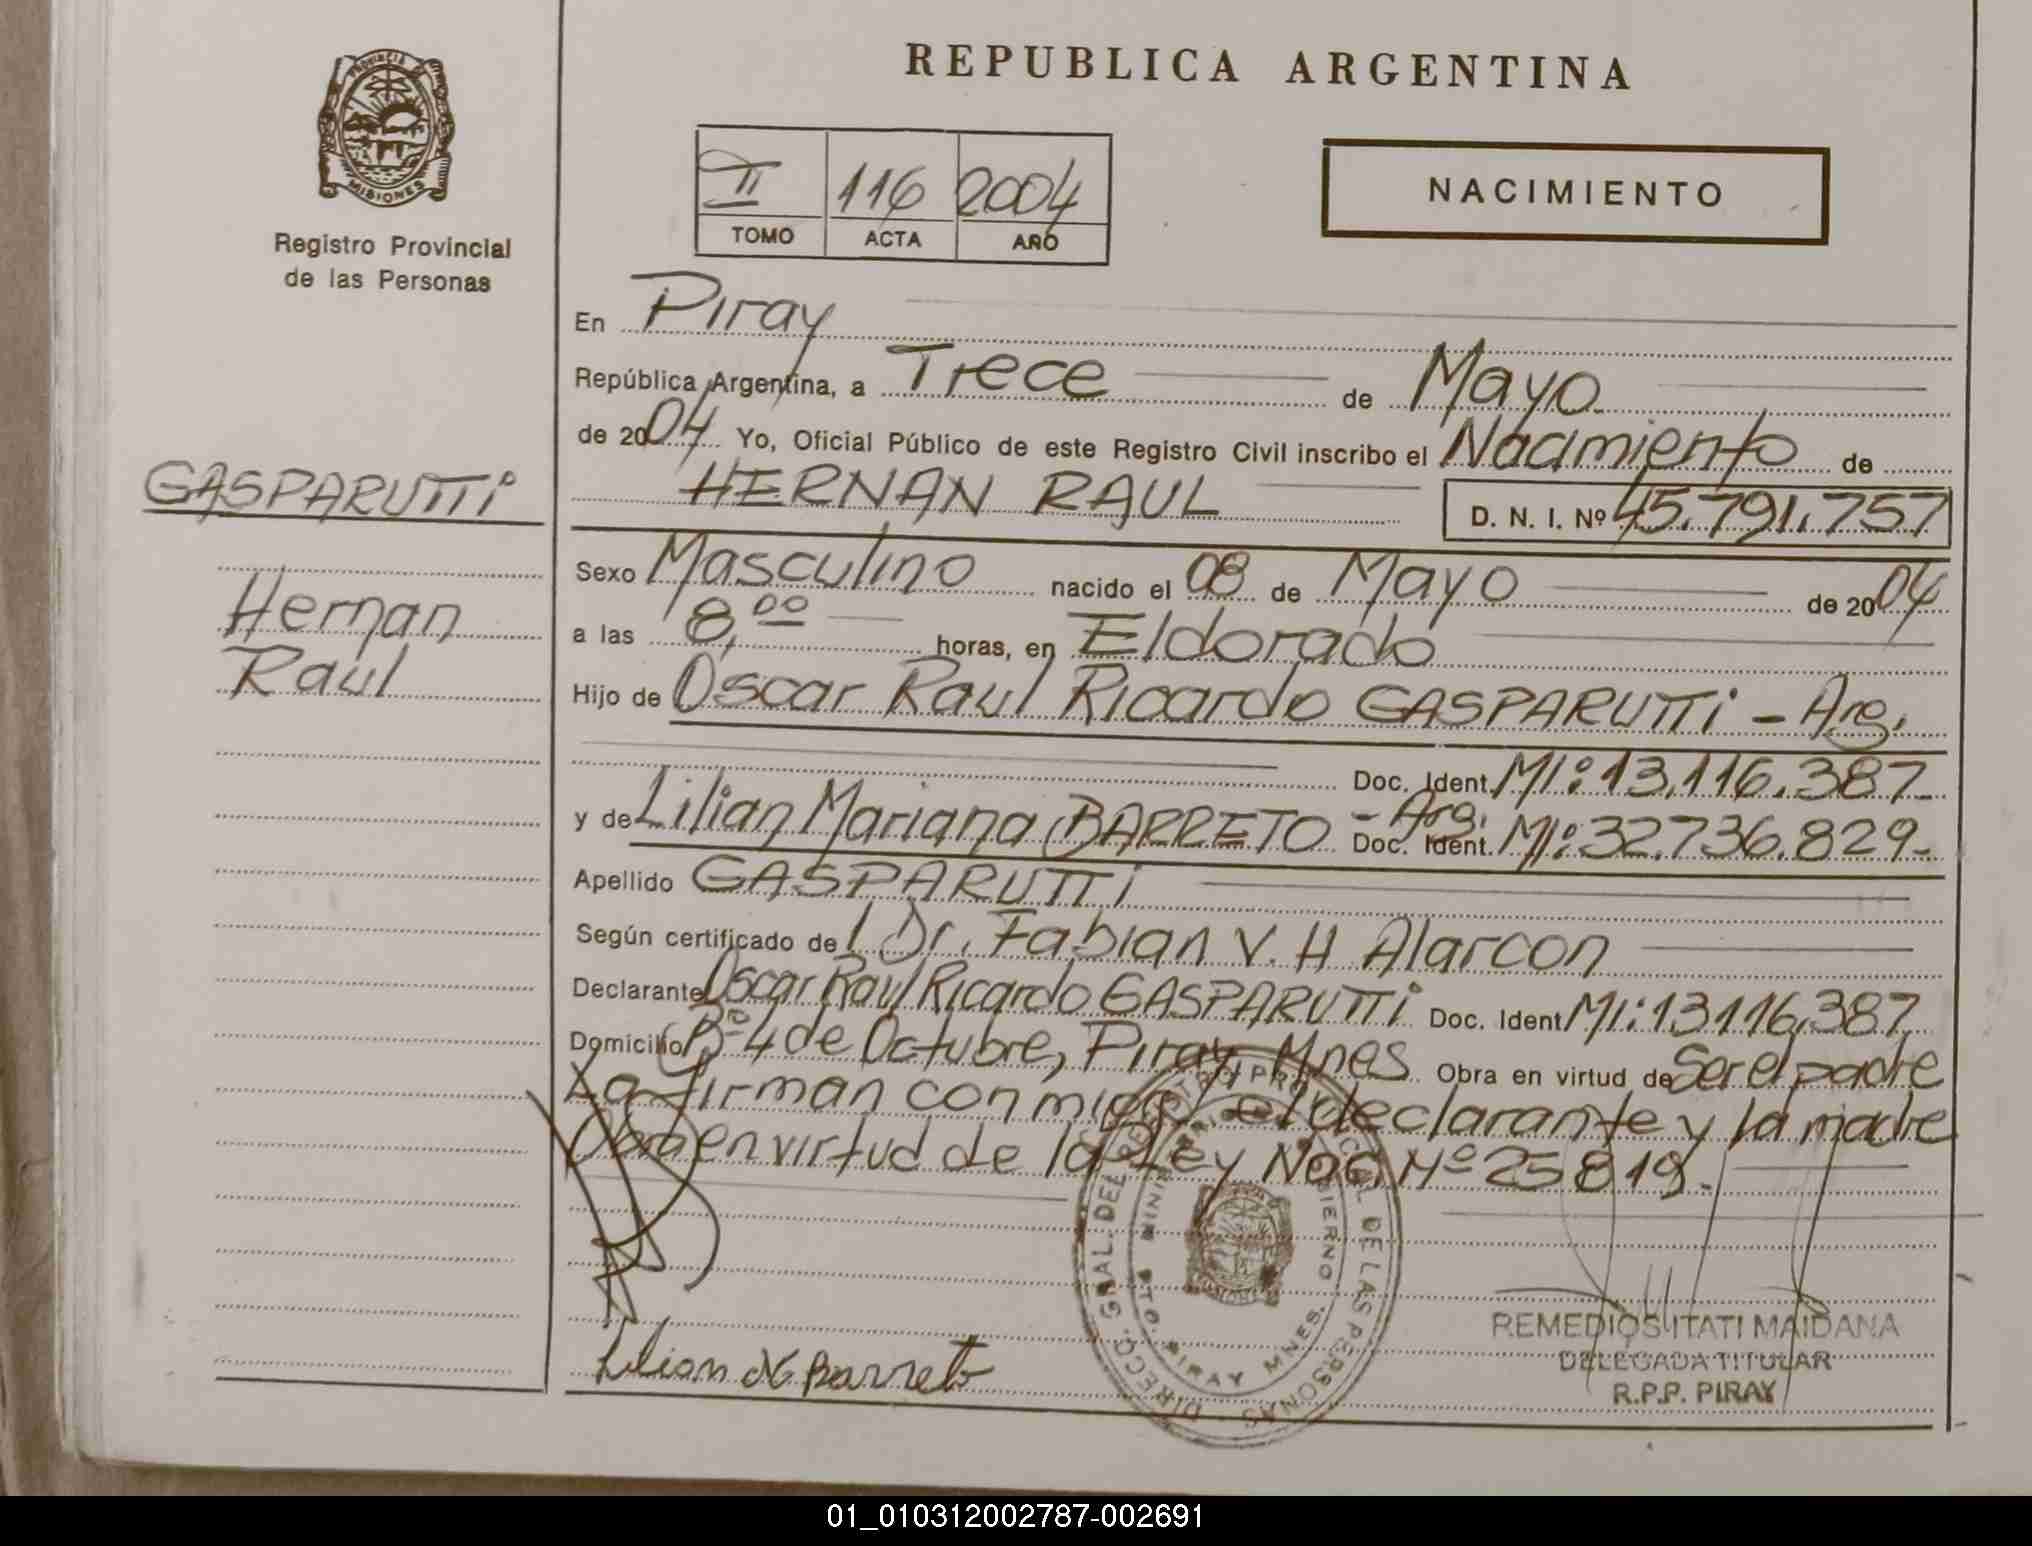 REPUBLICA ARGENTINA
PROVINCIA
MISIONES
Registro Provincial
de las Personas
II 116 2004
TOMO ACTA AÑO
NACIMIENTO
En Piray
República Argentina, a Trece de Mayo
de 2004 Yo, Oficial Público de este Registro Civil inscribo el Nacimiento de
HERNAN RAUL D. N. I. Nº 45.791.757
GASPARUTTi
Hernan
Raul
Sexo Masculino nacido el 08 de Mayo de 2004
a las 8,00 horas, en Eldorado
Hijo de Oscar Raul Ricardo GASPARUTTi - Arg.
Doc. Ident. MI: 13.116.387-
y de Lilian Mariana BARRETO - Arg. Doc. Ident. MI: 32.736.829-
Apellido GASPARUTTi
Según certificado del Dr. Fabian V. H Alarcon
Declarante Oscar Raul Ricardo GASPARUTTi Doc. Ident MI: 13.116.387
Domicilio Bº 4 de Octubre, Piray, Mnes Obra en virtud de Ser el padre
La firman conmigo el declarante y la madre
Obra en virtud de la Ley Nac. Nº 25819.
DIRECC. GRAL. DEL REGISTRO PROVINCIAL DE LAS PERSONAS
PTO. PIRAY MNES.
Lilian M Barreto
REMEDIOS ITATI MAIDANA
DELEGADA TITULAR
R.P.P. PIRAY
01_010312002787-002691